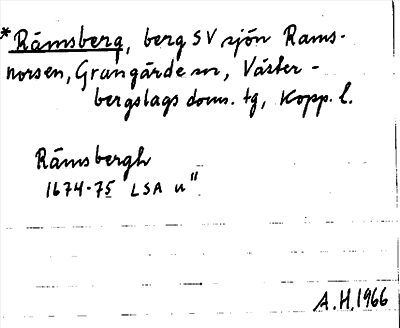 *Råmsberg, berg SV sjön Rams-
norsen, Grangärde sn, Väster-
bergslags doms. tg, Kopp. l.
Råmsbergh
1674-75 LSA u"
A.H. 1966